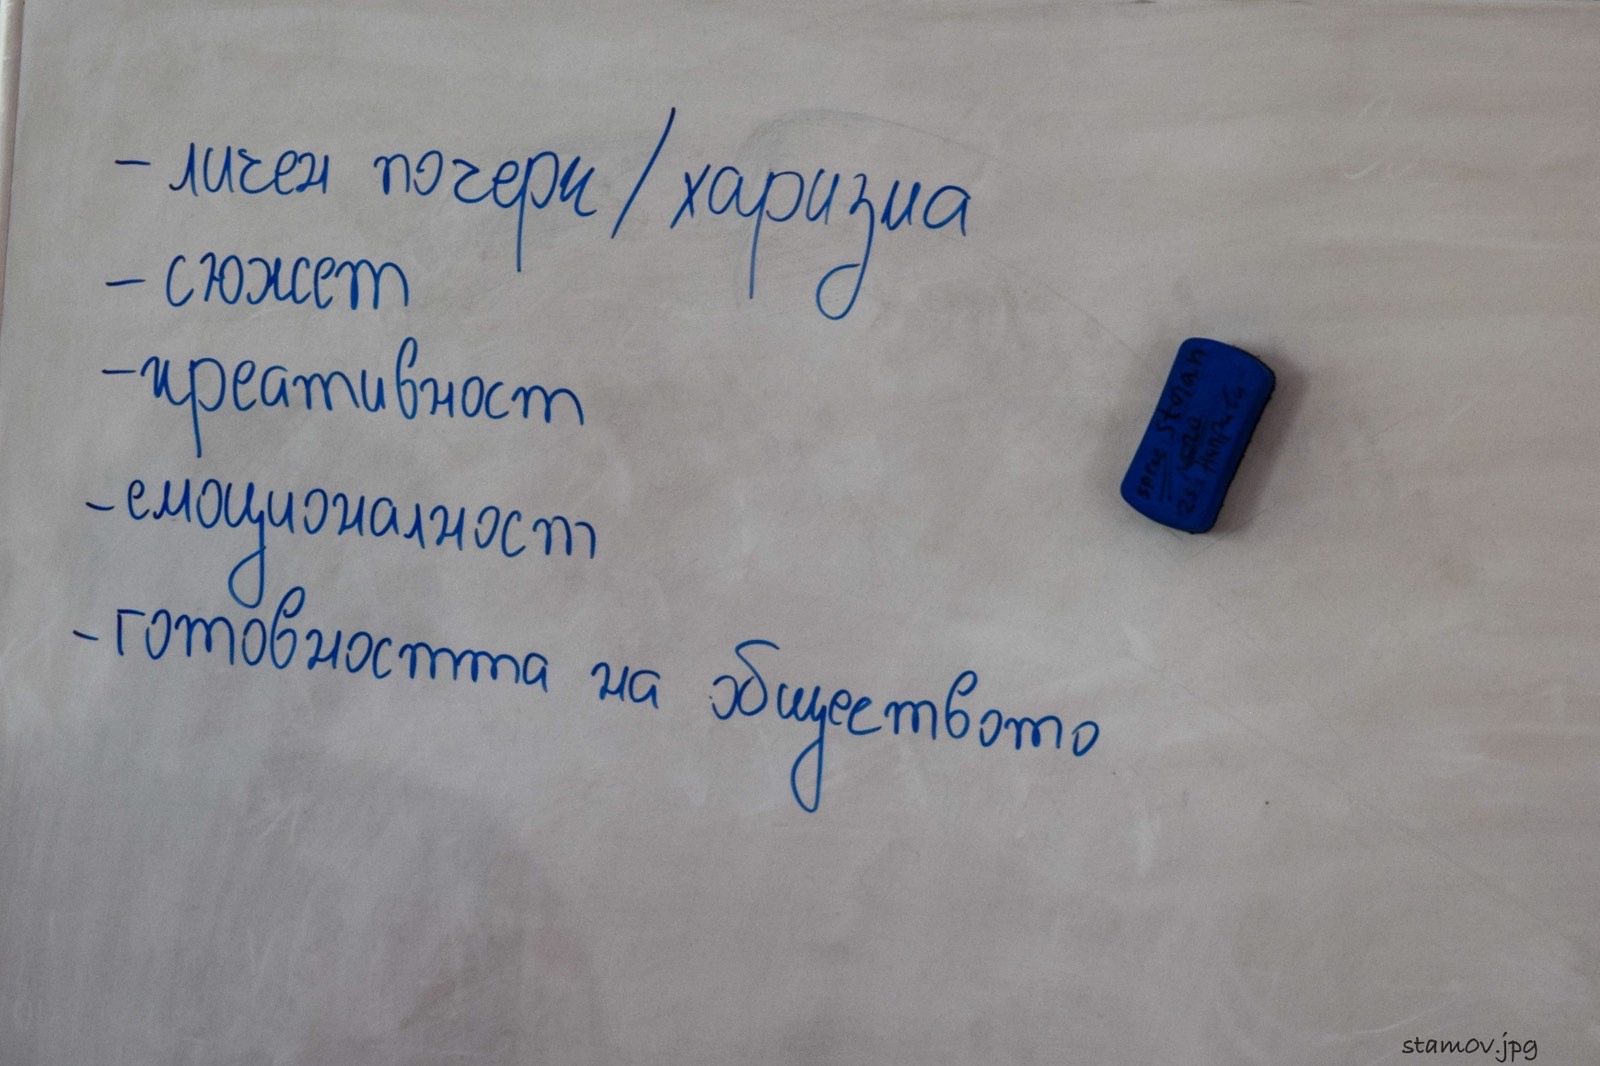 - личен почерк / харизма
- сюжет
- креативност
- емоционалност
- готовността на обществото
stamov.jpg